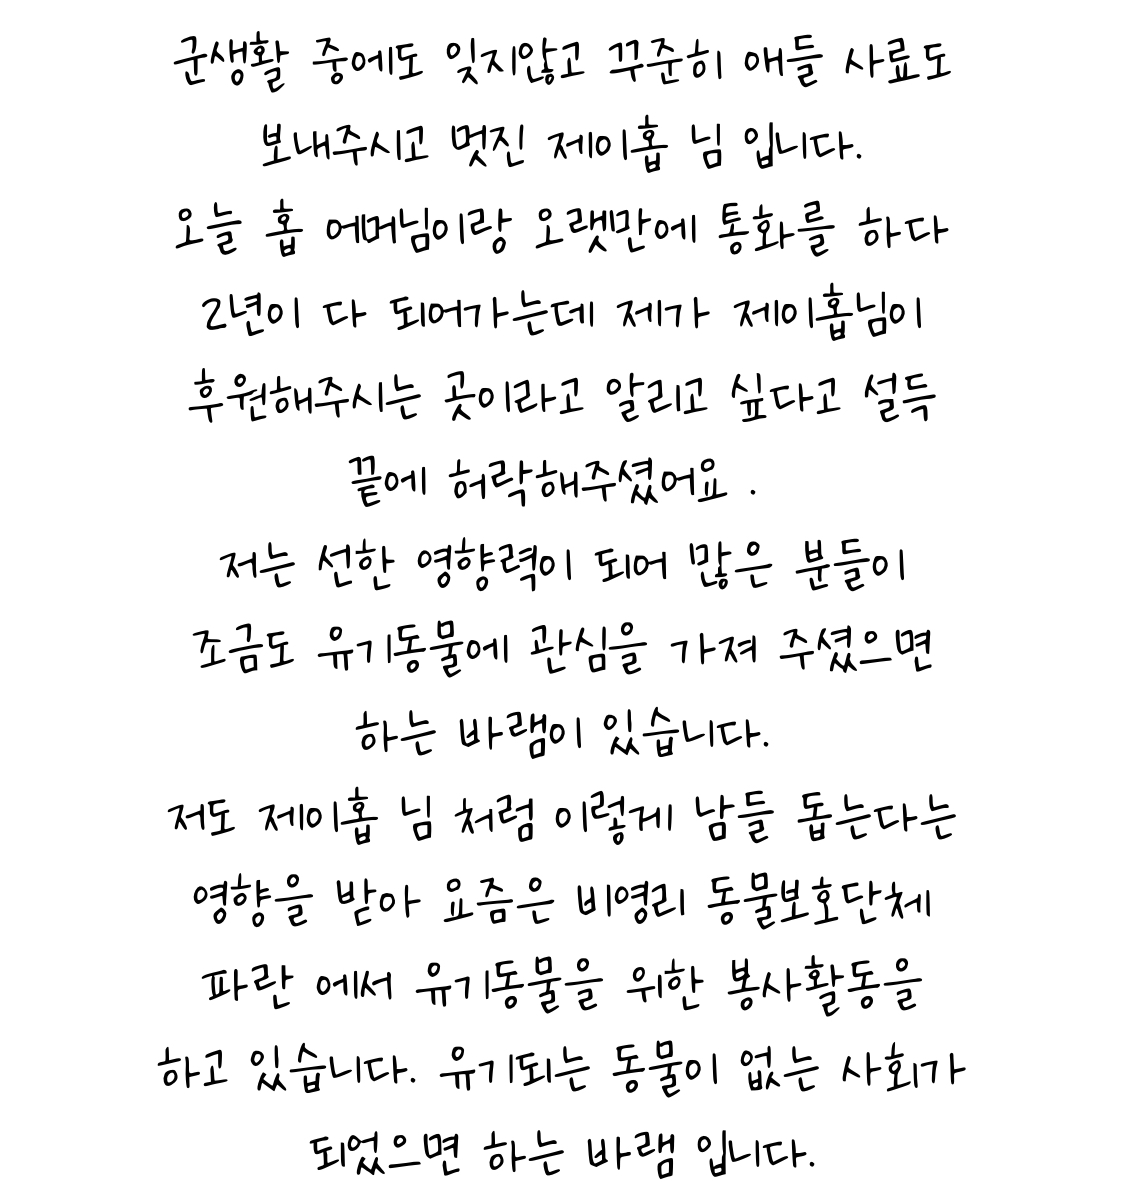 군생활 중에도 잊지않고 꾸준히 애들 사료도
보내주시고 멋진 제이홉 님 입니다.
오늘 홉 에머님이랑 오랫만에 통화를 하다
2년이 다 되어가는데 제가 제이홉님이
후원해주시는 곳이라고 알리고 싶다고 설득
끝에 허락해주셨어요 .
저는 선한 영향력이 되어 많은 분들이
조금도 유기동물에 관심을 가져 주셨으면
하는 바램이 있습니다.
저도 제이홉 님 처럼 이렇게 남들 돕는다는
영향을 받아 요즘은 비영리 동물보호단체
파란 에서 유기동물을 위한 봉사활동을
하고 있습니다. 유기되는 동물이 없는 사회가
되었으면 하는 바램 입니다.